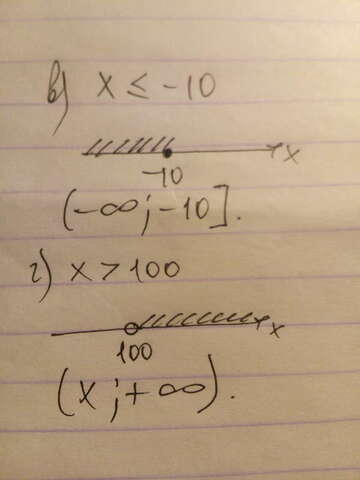 в) x ≤ -10
x
-10
(-∞; -10].
г) x > 100
x
100
(x; +∞).